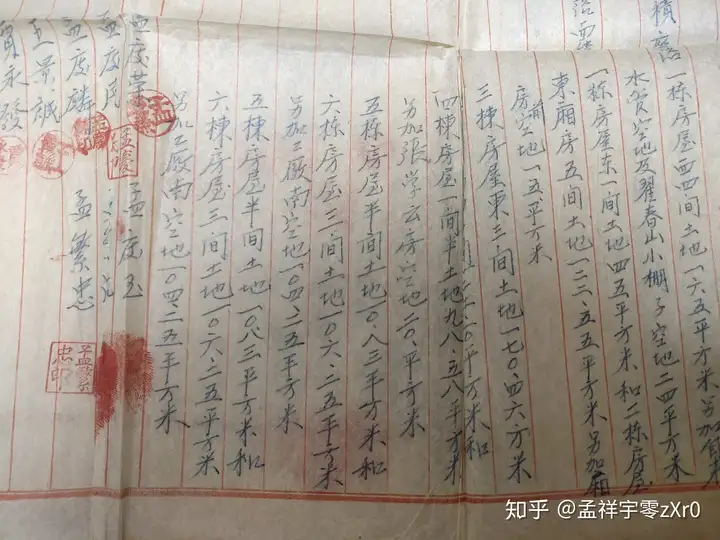 積
一栋房屋西四间土地一六五平方米另加
水贲空地及翟春山小棚子空地二四平方米
一栋房屋东一间土地四五平方米和二栋房屋
東厢房五间土地一二二.五五平方米另加厢
房前空地一五平方米
三棟房屋東三间土地一七〇.四六方米
四棟房屋一间半土地九八.五八平方米和
另加張学云房空地二〇.平方米
五栋房屋半间土地一〇.八三平方米和
六栋房屋三间土地一〇六.二五平方米
另加工廠南空地一〇四.二五平方米
五棟房屋半间土地一〇.八三平方米和
六棟房屋三间土地一〇六.二五平方米
另加工廠南空地一〇四.二五平方米
孟庆民
孟庆玉
孟庆麟
王景誠
孟繁忠
永發
孟繁忠印
知乎 @孟祥宇零zXr0